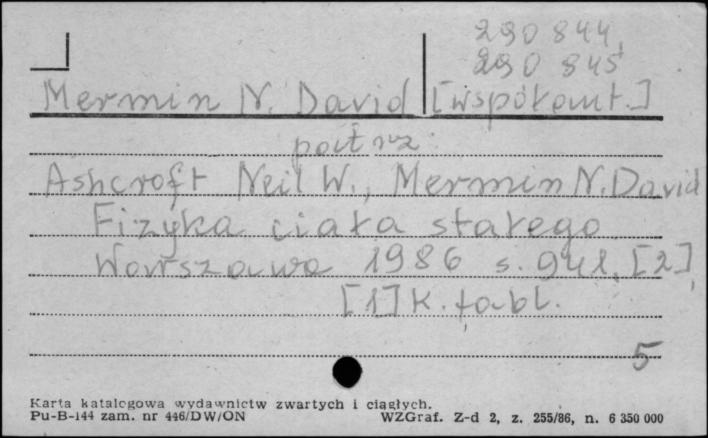 290 844,
290 845
Mermin N. David [współaut.]
patrz:
Ashcroft Neil W., Mermin N. David
Fizyka ciała stałego
Warszawa 1986 s. 941, [2],
[1] k. tabl.
5
Karta katalogowa wydawnictw zwartych i ciągłych.
Pu-B-144 zam. nr 446/DW/ON WZGraf. Z-d 2, z. 255/86, n. 6 350 000